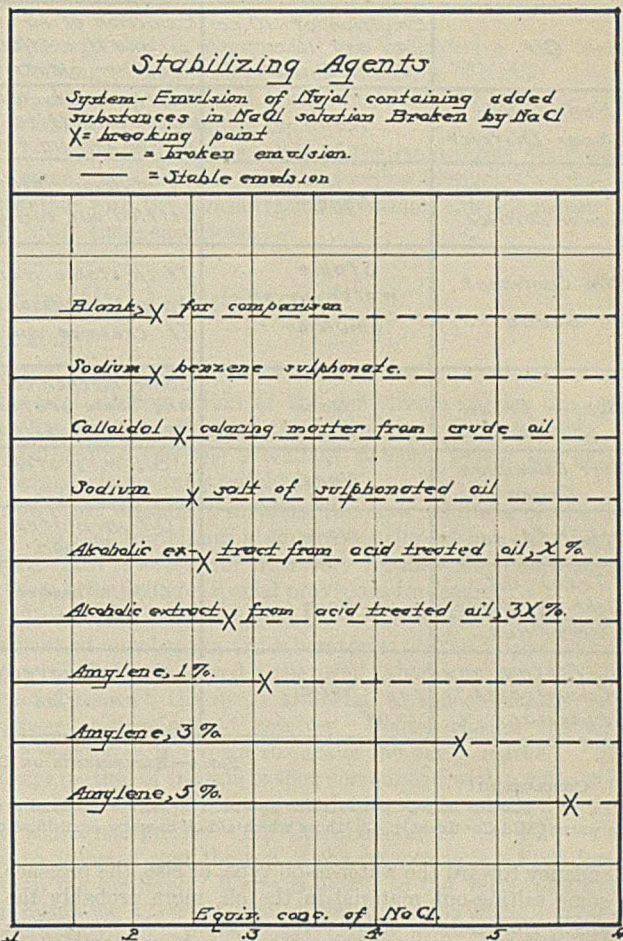 Stabilizing Agents
System - Emulsion of Nujol containing added
substances in NaCl solution Broken by NaCl
X = breaking point
- - - - = broken emulsion.
—— = Stable emulsion
Blank, X for comparison
Sodium X benzene sulphonate.
Calloidol X coloring matter from crude oil
Sodium X salt of sulphonated oil
Alcoholic ex- X tract from acid treated oil, X %.
Alcoholic extract X from acid treated oil, 3X %.
Amylene, 1%. X
Amylene, 3% X
Amylene, 5%. X
Equiv. conc. of NaCl.
.1 .2 .3 .4 .5 .6